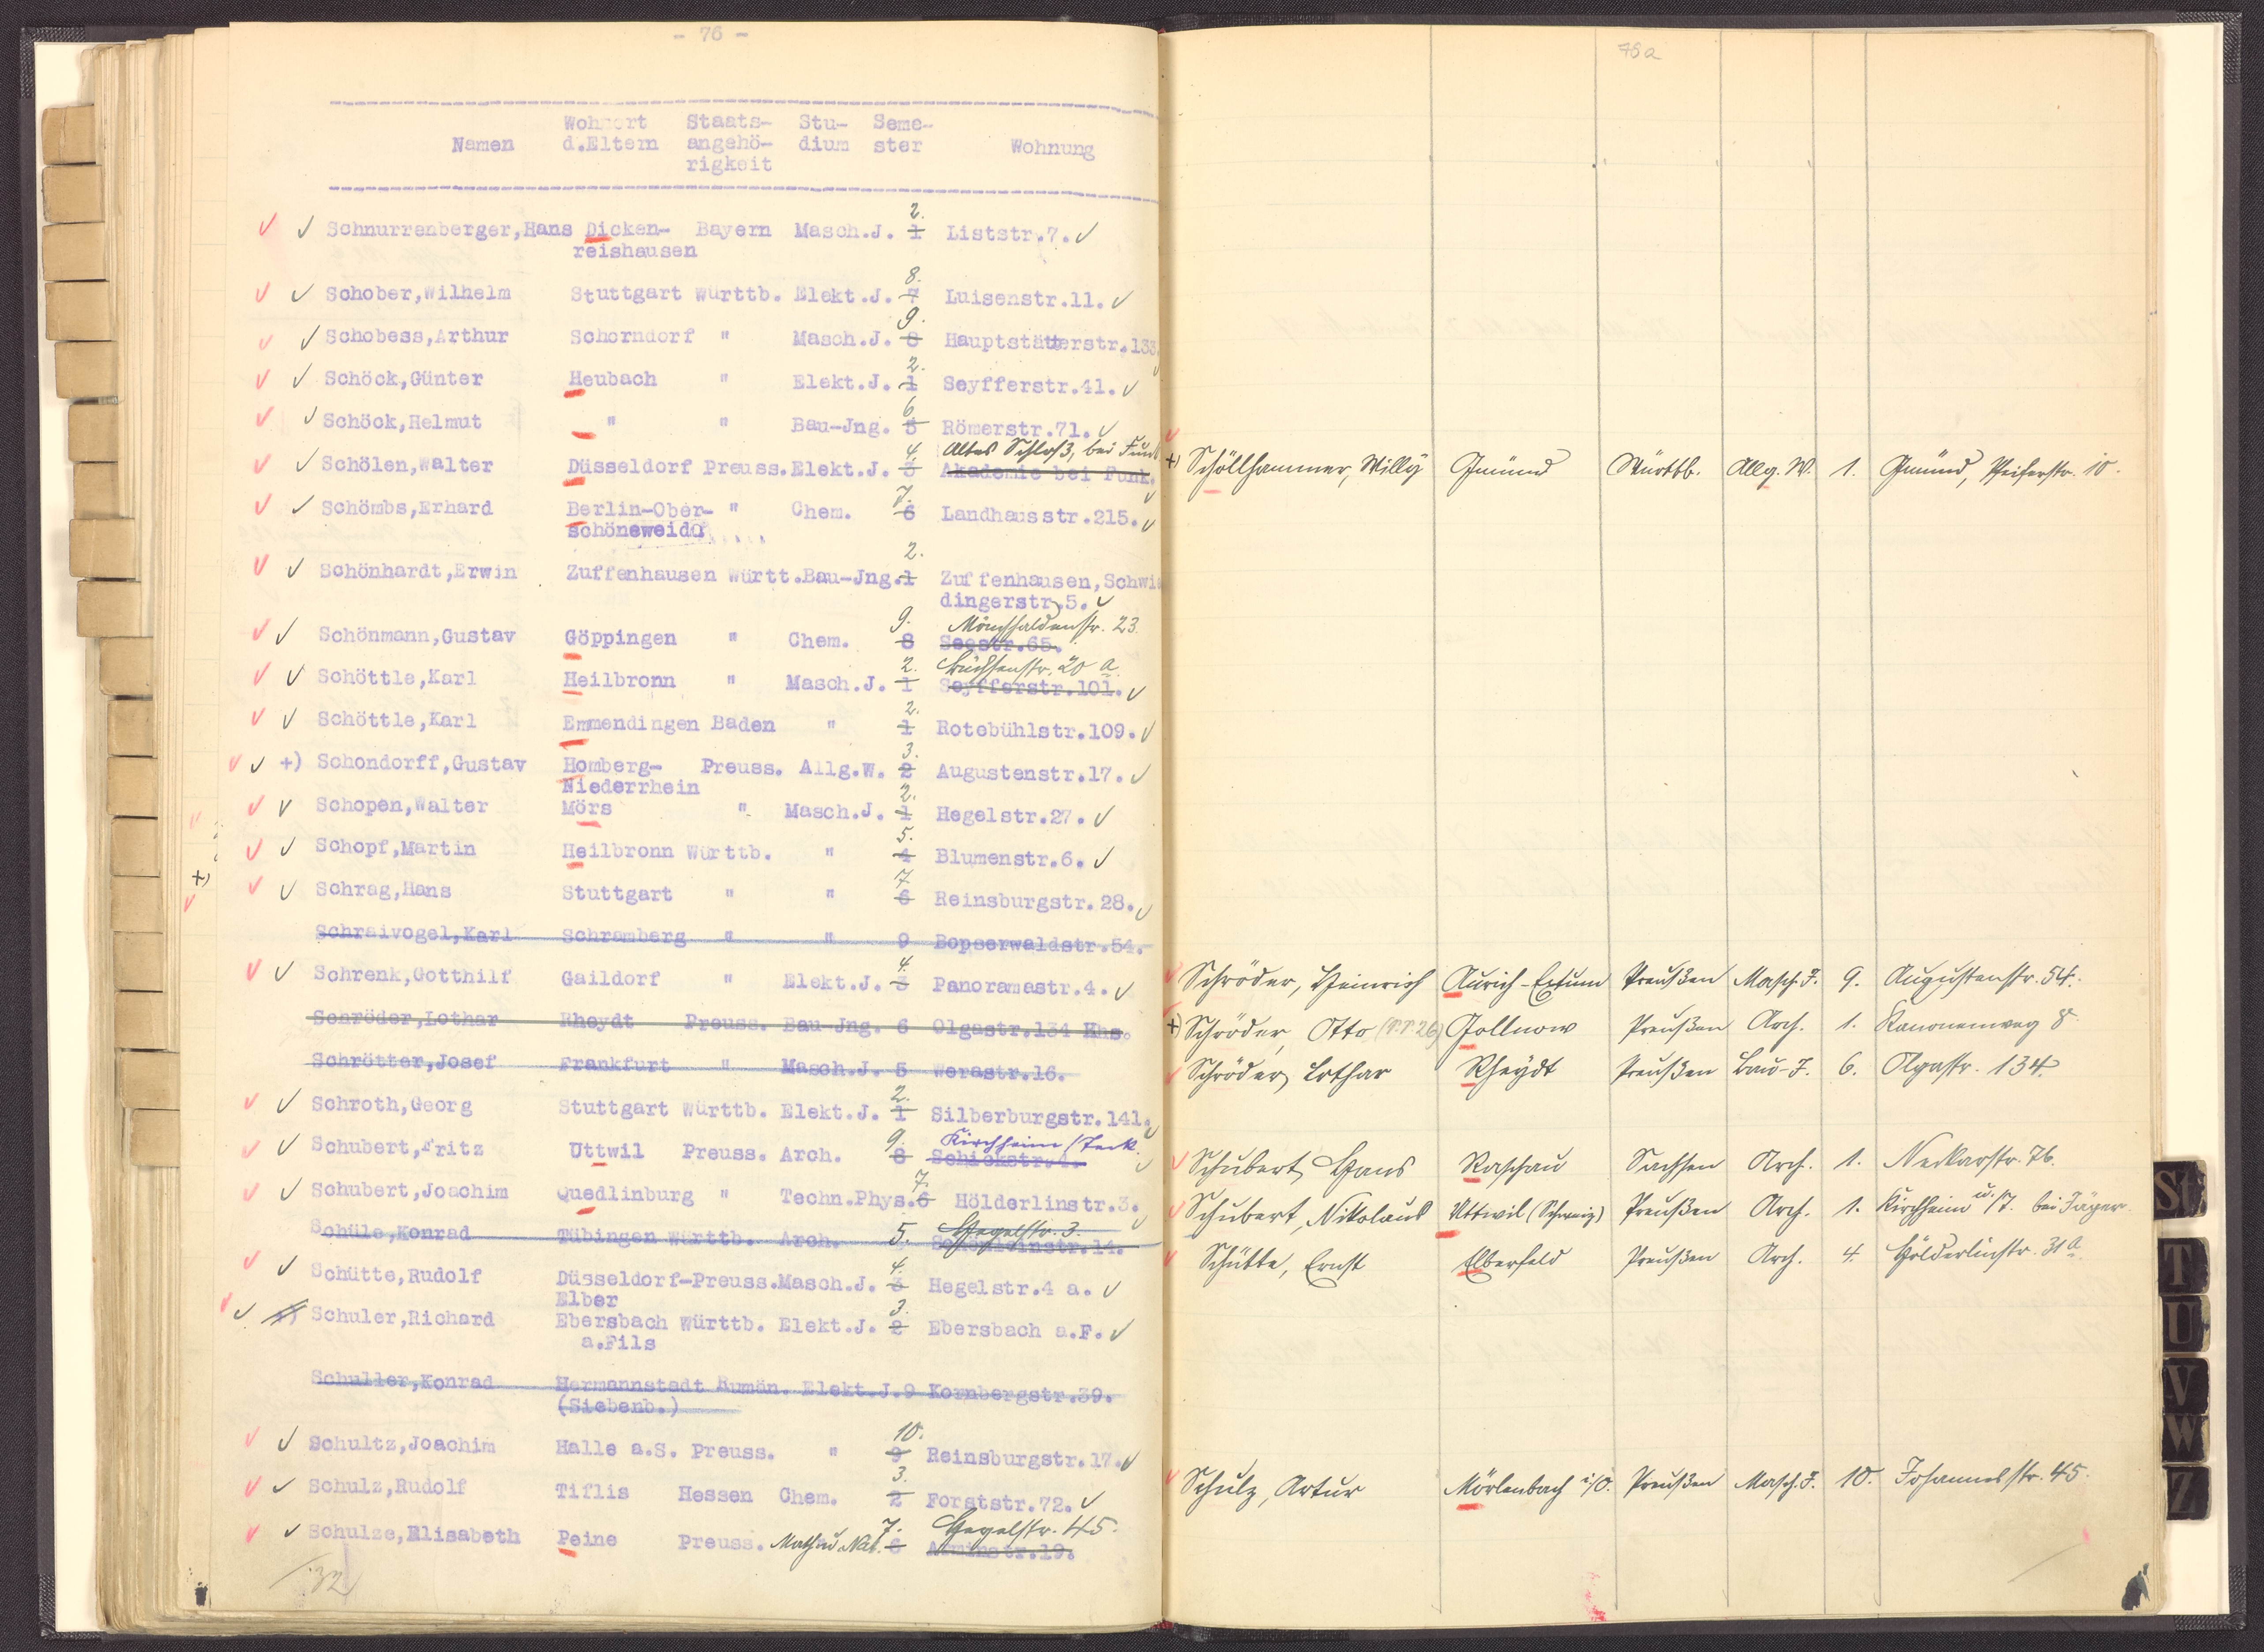 - 76 -
Namen Wohnort d.Eltern Staats-angehö-rigkeit Stu-dium Seme-ster Wohnung
Schnurrenberger,Hans Dicken- Bayern Masch.J. 1 2. Liststr.7.
reishausen
Schober,Wilhelm Stuttgart Württb. Elekt.J. 7 8. Luisenstr.11.
Schobess,Arthur Schorndorf " Masch.J. 8 9. Hauptstätterstr.133
Schöck,Günter Heubach " Elekt.J. 1 2. Seyfferstr.41.
Schöck,Helmut " " Bau-Jng. 5 6 Römerstr.71.
Altes Schloß, bei Funk
Schölen,Walter Düsseldorf Preuss. Elekt.J. 3 4. Akademie bei Funk.
Schömbs,Erhard Berlin-Ober- " Chem. 6 7. Landhausstr.215.
schöneweide
Schönhardt,Erwin Zuffenhausen Württ. Bau-Jng. 1 2. Zuffenhausen,Schwie
dingerstr.5.
Mönchhaldenstr. 23.
Schönmann,Gustav Göppingen " Chem. 8 9. Seestr.65.
Büchsenstr. 20 a.
Schöttle,Karl Heilbronn " Masch.J. 1 2. Seyfferstr.101.
Schöttle,Karl Emmendingen Baden " 1 2. Rotebühlstr.109.
+) Schondorff,Gustav Homberg- Preuss. Allg.W. 2 3. Augustenstr.17.
Niederrhein
Schopen,Walter Mörs " Masch.J. 1 2. Hegelstr.27.
Schopf,Martin Heilbronn Württb. " 4 5. Blumenstr.6.
+)
Schrag,Hans Stuttgart " " 6 7 Reinsburgstr.28.
Schraivogel,Karl Schramberg " " 9 Bopserwaldstr.54.
Schrenk,Gotthilf Gaildorf " Elekt.J. 3 4. Panoramastr.4.
Schröder,Lothar Rheydt Preuss. Bau-Jng. 6 Olgastr.134 Hhs.
Schrötter,Josef Frankfurt " Masch.J. 5 Werastr.16.
Schroth,Georg Stuttgart Württb. Elekt.J. 1 2. Silberburgstr.141.
Kirchheim/Teck.
Schubert,Fritz Uttwil Preuss. Arch. 8 9. Schickstr.4.
Schubert,Joachim Quedlinburg " Techn.Phys. 6 7. Hölderlinstr.3.
Hegelstr. 3.
Schüle,Konrad Tübingen Württb. Arch. 5. Schönleinstr.14.
Schütte,Rudolf Düsseldorf-Preuss. Masch.J. 3 4. Hegelstr.4 a.
Elber
Schuler,Richard Ebersbach Württb. Elekt.J. 2 3. Ebersbach a.F.
a.Fils
Schuller,Konrad Hermannstadt Rumän. Elekt.J. 9 Kornbergstr.39.
(Siebenb.)
Schultz,Joachim Halle a.S. Preuss. " 9 10. Reinsburgstr.17.
Schulz,Rudolf Tiflis Hessen Chem. 2 3. Forststr.72.
Hegelstr. 45.
Schulze,Elisabeth Peine Preuss. Math.u.Nat. 6 7. Arminstr.19.
32
76a
+) Schöllhammer, Willy Gmünd Württb. Allg. W. 1. Gmünd, Pfeiferstr. 10.
Schröder, Heinrich Aurich-Extum Preußen Masch. J. 9. Augustenstr. 54.
+) Schröder, Otto Gollnow Preußen Arch. 1. Kanonenweg 8.
Schröder, Lothar Rheydt Preußen Bau-J. 6. Olgastr. 134.
Schubert, Hans Raschau Sachsen Arch. 1. Neckarstr. 76.
Schubert, Nikolaus Uttwil (Schweiz) Preußen Arch. 1. Kirchheim u./T. bei Jäger.
Schütte, Ernst Elberfeld Preußen Arch. 4. Hölderlinstr. 31 a
Schulz, Artur Mörlenbach i/O. Preußen Masch. J. 10. Johannesstr. 45.
St
T
U
V
W
Z